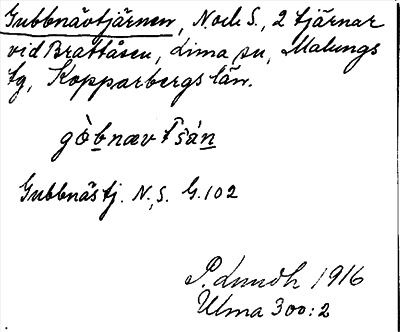 Gubbnävtjärnen, N och S., 2 tjärnar
vid Bråttåsen, Lima sn, Malungs
tg, Kopparbergs län.
gòbnævtšán
Gubbnästj. N., S. G.102
P. Lundh 1916
Ulma 300:2